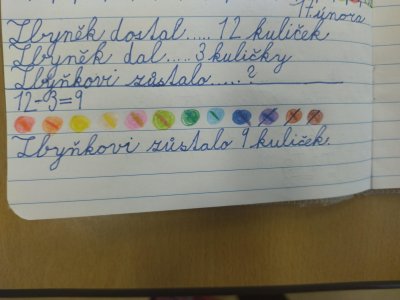 17. února
Zbyněk dostal.....12 kuliček
Zbyněk dal.....3 kuličky
Zbyňkovi zůstalo.....?
12-3=9
Zbyňkovi zůstalo 9 kuliček.